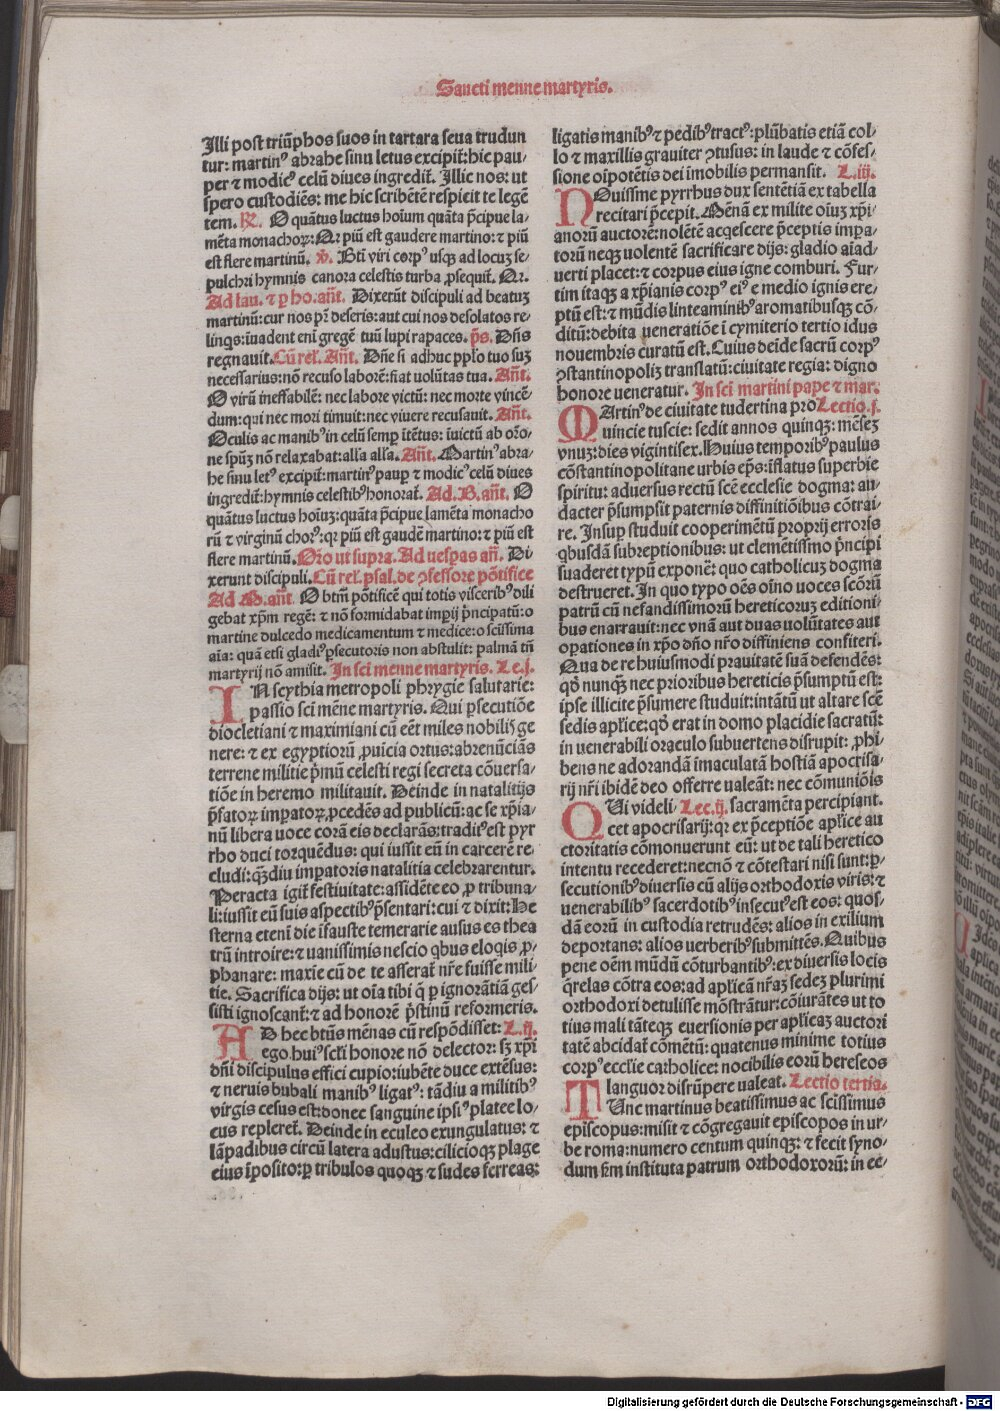 Sancti menne martyris.
Illi post triūphos suos in tartara seua trudun
tur: martinꝰ abrahe sinu letus excipit̄: hic pau/
per ⁊ modicꝰ celū diues ingredit̄. Illic nos: ut
spero custodiēs: me hic scribētē respicit te legē
tem. ℟. O quātus luctus hoīum quāta p̄cipue la/
mēta monachoꝝ: Qr piū est gaudere martino: ⁊ piū
est flere martinū. ℣. Bti viri corpꝰ usqꝫ ad locuꝫ se/
pulchri hymnis canora celestis turba ꝓsequit̄. Qr.
Ad lau. ⁊ ꝑ ho. an̄t. Dixerūt discipuli ad beatuꝫ
martinū: cur nos pr̄ deseris: aut cui nos desolatos re/
linq̄s: īuadent enī gregē tuū lupi rapaces. p̄s. Dn̄s
regnauit. Cū rel̄. An̄t. Dn̄e si adhuc pp̄lo tuo suꝫ
necessarius: nō recuso laborē: fiat uolūtas tua. An̄t.
O virū ineffabilē: nec labore victū: nec morte vincē
dum: qui nec mori timuit: nec viuere recusauit. An̄t.
Oculis ac manibꝰ in celū semꝑ ītētus: īuictū ab or̄o/
ne spūꝫ nō relaxabat: all̄a all̄a. An̄t. Martinꝰ abra/
he sinu letꝰ excipit̄: martinꝰ pauꝑ ⁊ modicꝰ celū diues
ingredit̄: hymnis celestibꝰ honorat̄. Ad. B. an̄t. O
quātus luctus hoīuꝫ: quāta p̄cipue lamēta monacho
rū ⁊ virginū chorꝰ: qꝛ piū est gaudē martino: ⁊ piū est
flere martinū. Or̄o ut supra. Ad uesꝑas an̄. Di/
xerunt discipuli. Cū rel̄. psal. de ↄfessore pōtifice
Ad M. an̄t. O btm̄ pōtificē qui totis visceribꝰ dili
gebat xp̄m regē: ⁊ nō formidabat imꝑij p̄ncipatū: o
martine dulcedo medicamentum ⁊ medice: o sc̄issima
aīa: quā etsi gladiꝰ ꝑsecutoris non abstulit: palmā tn̄
martyrij nō amisit. In sc̄i menne martyris. Le. j.
IN scythia metropoli phrygie salutarie:
passio sc̄i mēne martyris. Qui ꝑsecutiōe
diocletiani ⁊ maximiani cū eēt miles nobilis ge
nere: ⁊ ex egyptiorū ꝓuīcia ortus: abrenūciās
terrene militie p̄mū celesti regi secreta cōuersa/
tiōe in heremo militauit. Deinde in natalitijs
p̄fatoꝝ imꝑatoꝝ ꝓcedēs ad publicū: ac se xp̄ia/
nū libera uoce corā eis declarās: traditꝰ est pyr
rho duci torquēdus: qui iussit eū in carcerē re
cludi: qꝫdiu imꝑatoris natalitia celebrarentur.
Peracta igit̄ festiuitate: assidēte eo ꝓ tribuna/
li: iussit eū suis aspectibꝰ p̄sentari: cui ⁊ dixit: He
sterna etenī die īfauste temerarie ausus es thea
trū introire: ⁊ uanissimis nescio qbus eloqis ꝓ/
phanare: maxīe cū de te asserat̄ nr̄e fuisse mili/
tie. Sacrifica dijs: ut oīa tibi q̄ ꝑ ignorātiā ges/
sisti ignoscant̄: ⁊ ad honorē p̄stinū reformeris.
AD hec btūs mēnas cū respōdisset: L. ij.
ego huiꝰ scl̄i honore nō delector: sꝫ xp̄i
dn̄i discipulus effici cupio: iubēte duce extēsus:
⁊ neruis bubali manibꝰ ligatꝰ: tādiu a militibꝰ
virgis cesus est: donec sanguine ipsiꝰ platee lo/
cus repleret̄. Deinde in eculeo exungulatus: ⁊
lāpadibus circū latera adustus: cilicioqꝫ plage
eius īposito: ꝑ tribulos quoqꝫ ⁊ sudes ferreas:
ligatis manibꝰ ⁊ pedibꝰ tractꝰ: plūbatis etiā col/
lo ⁊ maxillis grauiter ↄtusus: in laude ⁊ cōfes/
sione oīpotētis dei īmobilis permansit. L. iij.
NOuissime pyrrhus dux sentētiā ex tabella
recitari p̄cepit. Mēnā ex milite oīuꝫ xp̄i/
anorū auctorē: nolētē acqescere p̄ceptis imꝑa/
torū neqꝫ uolentē sacrificare dijs: gladio aīad/
uerti placet: ⁊ corpus eius igne comburi. Fur/
tim itaqꝫ a xp̄ianis corpꝰ eiꝰ e medio ignis ere/
ptū est: ⁊ mūdis linteaminibꝰ aromatibusqꝫ cō/
ditū: debita ueneratiōe ī cymiterio tertio idus
nouembris curatū est. Cuius deīde sacrū corpꝰ
ↄstantinopoliꝫ translatū: ciuitate regia: digno
honore ueneratur. In sc̄i martini pape ⁊ mar.
MArtinꝰ de ciuitate tudertina pro Lectio. j.
uincie tuscie: sedit annos quinqꝫ: mēseꝫ
vnuꝫ: dies vigintisex. Huius temporibꝰ paulus
cōstantinopolitane urbis ep̄s: īflatus superbie
spiritu: aduersus rectū sc̄e ecclesie dogma: au/
dacter p̄sumpsit paternis diffinitiōibus cōtrai/
re. Insuꝑ studuit cooperimētū proprij erroris
qbusdā subreptionibus: ut clemētissimo p̄ncipi
suaderet typū exponē: quo catholicuꝫ dogma
destrueret. In quo typo oēs oīno uoces sc̄orū
patrū cū nefandissimorū hereticoruꝫ edition i/
bus enarrauit: nec vnā aut duas uolūtates aut
oꝑationes in xp̄o dn̄o nr̄o diffiniens confiteri.
Qua de re huiusmodi prauitatē suā defendēs:
qd̓ nunqꝫ nec prioribus hereticis p̄sumptū est:
ipse illicite p̄sumere studuit: intātū ut altare sc̄e
sedis apl̄ice: qd̓ erat in domo placidie sacratū:
in uenerabili oraculo subuertens disrupit: ꝓhi/
bens ne adorandā imaculatā hostiā apocrisa/
rij nr̄i ibidē deo offerre ualeāt: nec cōmuniōis
QUi videli/ Lec. ij. sacramēta percipiant.
cet apocrisarij: qꝛ ex p̄ceptiōe apl̄ice au
ctoritatis cōmonuerunt eū: ut de tali heretico
intentu recederet: necnō ⁊ cōtestari nisi sunt: ꝑ/
secutionibꝰ diuersis cū alijs orthodoxis viris: ⁊
uenerabilibꝰ sacerdotibꝰ insecutꝰ est eos: quos/
dā eorū in custodia retrudēs: alios in exilium
deportans: alios uerberibꝰ submittēs. Quibus
pene oēm mūdū cōturbantibꝰ: ex diuersis locis
q̄relas cōtra eos: ad apl̄icā nr̄aꝫ sedeꝫ plurimi
orthodoxi detulisse mōstrātur: cōiurātes ut to
tius mali tāteqꝫ euersionis per apl̄icaꝫ auctori
tatē abcidat̄ cōmētū: quatenus minime totius
corpꝰ eccl̄ie catholice: nocibilis eorū hereseos
languor disrūpere ualeat. Lectio tertia.
TUnc martinus beatissimus ac sc̄issimus
episcopus: misit ⁊ cōgregauit episcopos in ur/
be roma: numero centum quinqꝫ: ⁊ fecit syno/
dum sm̄ instituta patrum orthodoxorū: in ec/
Digitalisierung gefördert durch die Deutsche Forschungsgemeinschaft - DFG